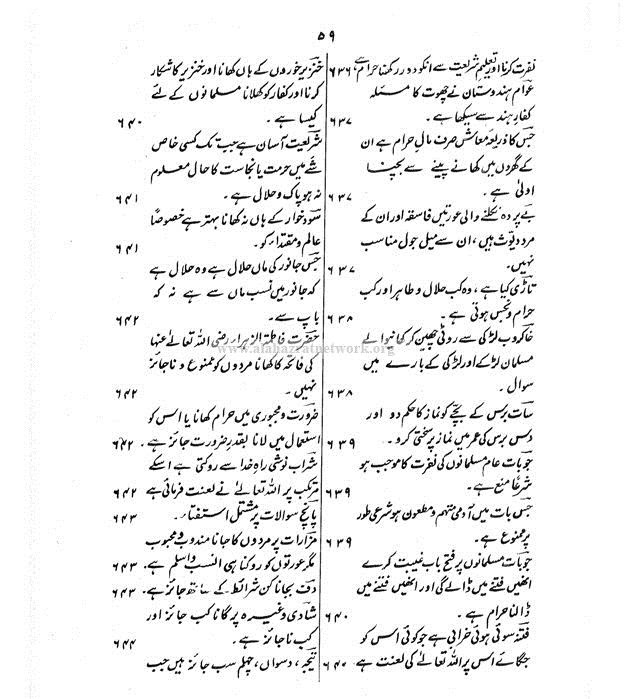 ۵۹
نفرت کرنا اور تعلیم شریعت سے انکو دور رکھنا حرام ہے ۶۳۶
عوام ہندوستان نے چھوت کا مسئلہ
کفار ہند سے سیکھا ہے۔ ۶۳۷
جس کا ذریعۂ معاش صرف مال حرام ہے ان
کے گھروں میں کھانے پینے سے بچنا
اولیٰ ہے۔ ۶۳۷
بے پردہ نکلنے والی عورتیں فاسقہ اور ان کے
مرد دیوث ہیں، ان سے میل جول مناسب
نہیں۔ ۶۳۷
تاڑی کیا ہے، وہ کب حلال و طاہر اور کب
حرام و نجس ہوتی ہے۔ ۶۳۸
خاکروب لڑکی سے روٹی چھین کر کھانیوالے
مسلمان لڑکے اور لڑکی کے بارے میں
سوال۔ ۶۳۸
سات برس کے بچے کو نماز کا حکم دو اور
دس برس کی عمر میں نماز پر سختی کرو۔ ۶۳۹
جو بات عام مسلمانوں کی نفرت کا موجب ہو
شرعاً منع ہے۔ ۶۳۹
جس بات میں آدمی متہم و مطعون ہو شرعی طور
پر ممنوع ہے۔ ۶۳۹
جو بات مسلمانوں پر فتح باب غیبت کرے
انھیں فتنے میں ڈالے گی اور انھیں فتنے میں
ڈالنا حرام ہے۔ ۶۴۰
فتنہ سوئی ہوئی خرابی ہے جو کوئی اس کو
جگائے اس پر اللہ تعالیٰ کی لعنت ہے ۶۴۰
خنزیر خوروں کے ہاں کھانا اور خنزیر کا شکار
کرنا اور کفار کو کھلانا مسلمانوں کے لئے
کیسا ہے۔ ۶۴۰
شریعت آسان ہے جب تک کسی خاص
شے میں حرمت یا نجاست کا حال معلوم
نہ ہو پاک و حلال ہے۔ ۶۴۱
سود خوار کے ہاں نہ کھانا بہتر ہے خصوصاً
عالم و مقتداء کو۔ ۶۴۱
جس جانور کی ماں حلال ہے وہ حلال ہے
کہ جانور میں نسب ماں سے ہے نہ کہ
باپ سے۔ ۶۴۲
حضرت فاطمۃ الزہراء رضی اللہ تعالیٰ عنہا
کی فاتحہ کا کھانا مردوں کو ممنوع و ناجائز
نہیں۔ ۶۴۲
ضرورت و مجبوری میں حرام کھانا یا اس کو
استعمال میں لانا بقدر ضرورت جائز ہے۔ ۶۴۲
شراب نوشی راہ خدا سے روکتی ہے اسکے
مرتکب پر اللہ تعالیٰ نے لعنت فرمائی ہے ۶۴۲
پانچ سوالات پر مشتمل استفتاء۔ ۶۴۳
مزارات پر مردوں کا جانا مندوب و محبوب
مگر عورتوں کو روکنا ہی انسب و اسلم ہے۔ ۶۴۳
دف بجانا کن شرائط کے ساتھ جائز ہے۔ ۶۴۳
شادی وغیرہ پر گانا کب جائز اور
کب ناجائز ہے۔ ۶۴۴
تیجہ، دسواں، چہلم سب جائز ہیں جب
www.alahazratnetwork.org